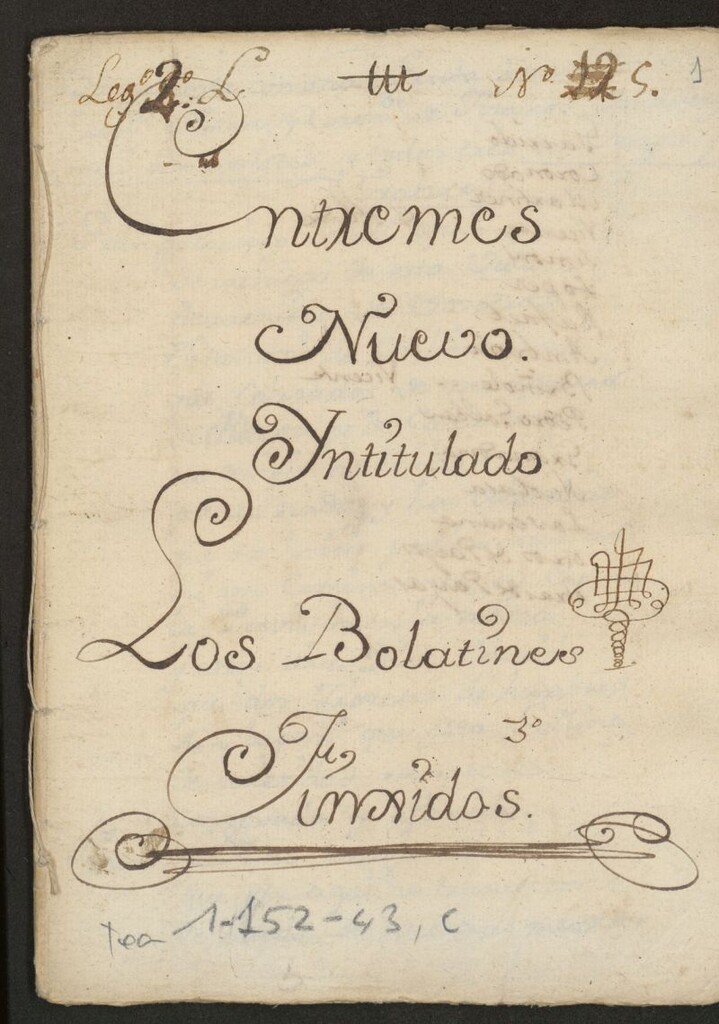 Leg.º 2.º L. ttt Nº 12 5. 1
Entremes
Nuevo.
Yntitulado
Los Bolatines
3º
Finxidos.
Tea 1-152-43, C